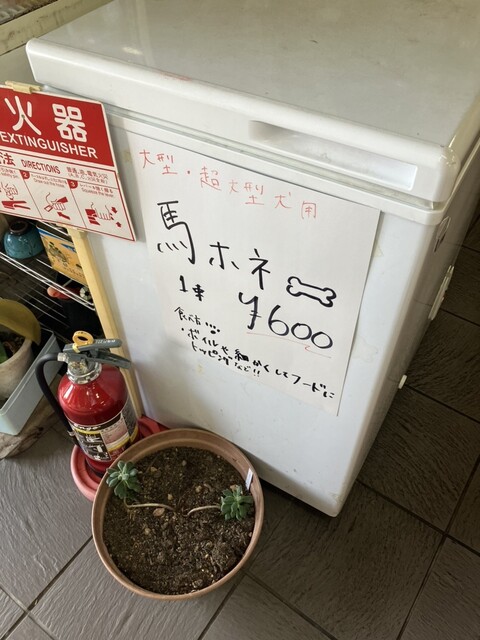 火器
EXTINGUISHER
法 DIRECTIONS
大型・超大型犬用
馬ホネ
1本 ¥600
食べ方...
・ボイルや細かくしてフードに
トッピングなど!!